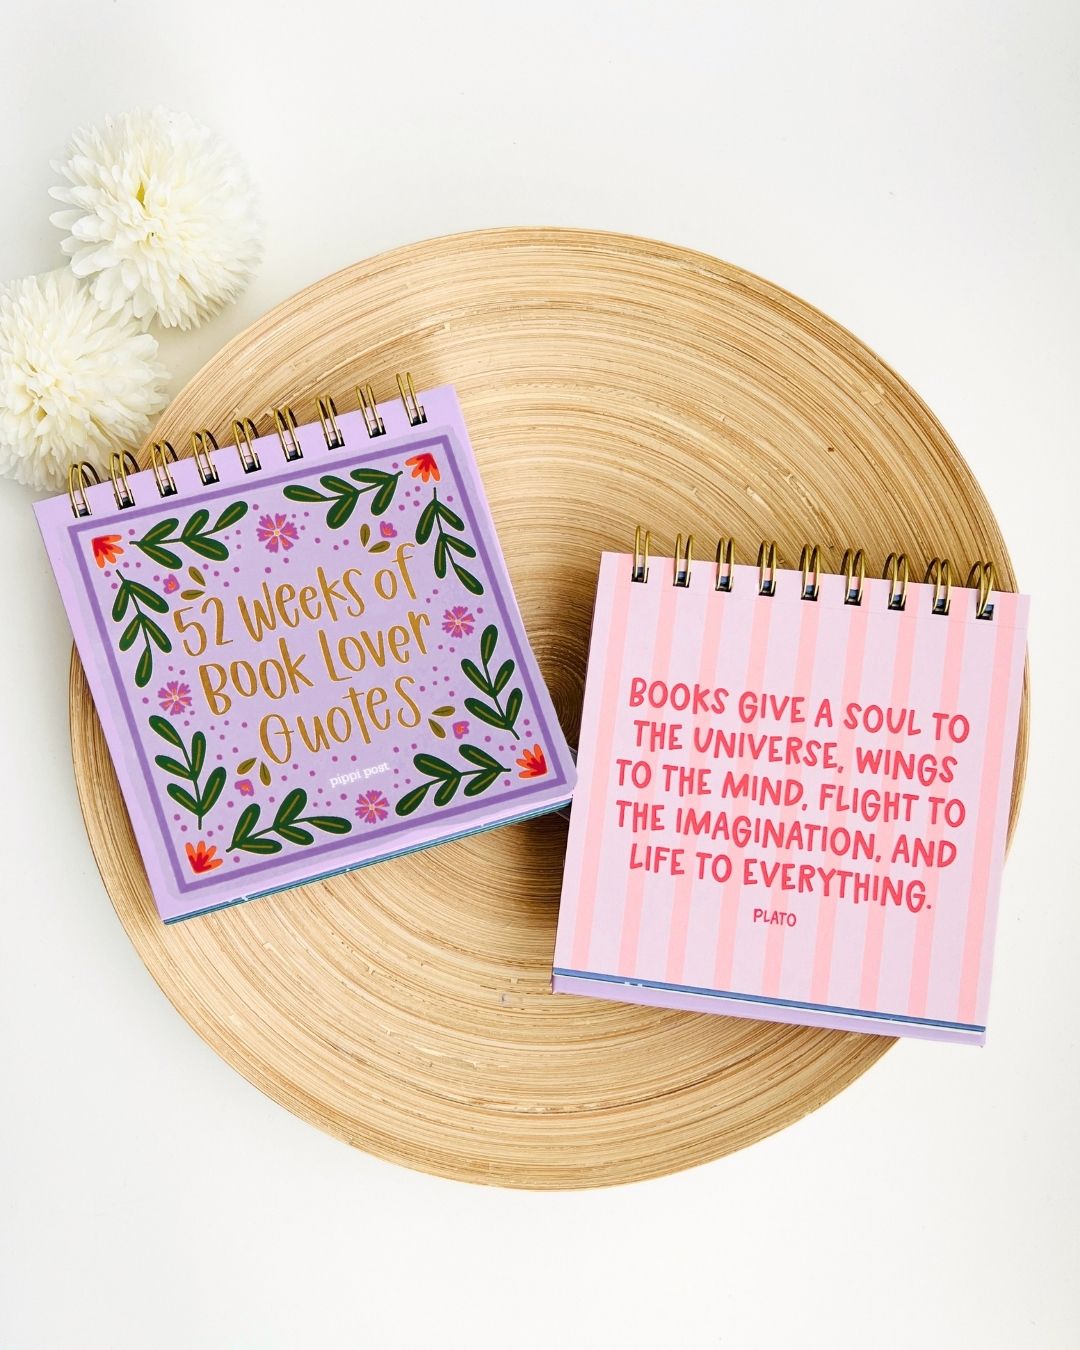 52 Weeks of
Book Lover
Quotes
pippi post
BOOKS GIVE A SOUL TO
THE UNIVERSE, WINGS
TO THE MIND, FLIGHT TO
THE IMAGINATION, AND
LIFE TO EVERYTHING.
PLATO